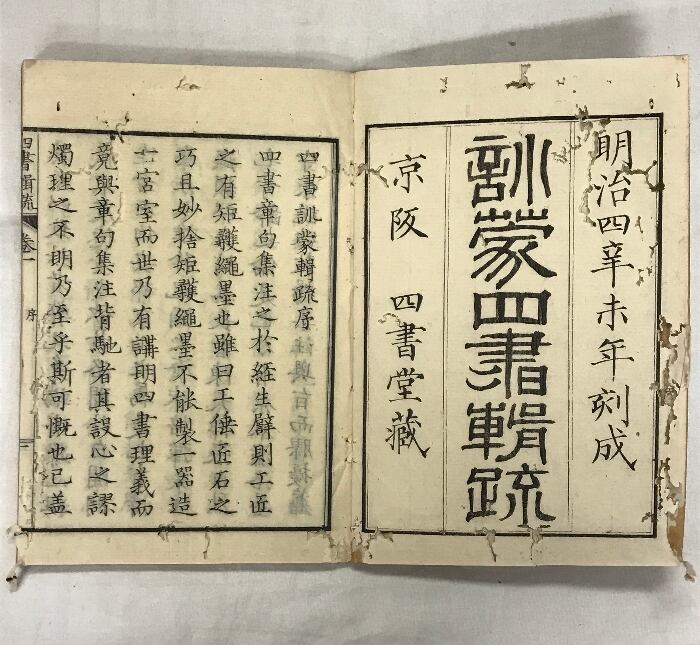 明治四辛未年刻成
訓蒙四書輯疏
京阪 四書堂藏
四書訓蒙輯疏序
四書章句集注之於經生辟則工匠
之有矩矱繩墨也雖曰工倕匠石之
巧且妙捨矩矱繩墨不能製一器造
一宮室而世乃有講明四書理義而
竟與章句集注背馳者其設心之謬
燭理之不明乃至乎斯可慨也已蓋
四書輯疏 卷一 序